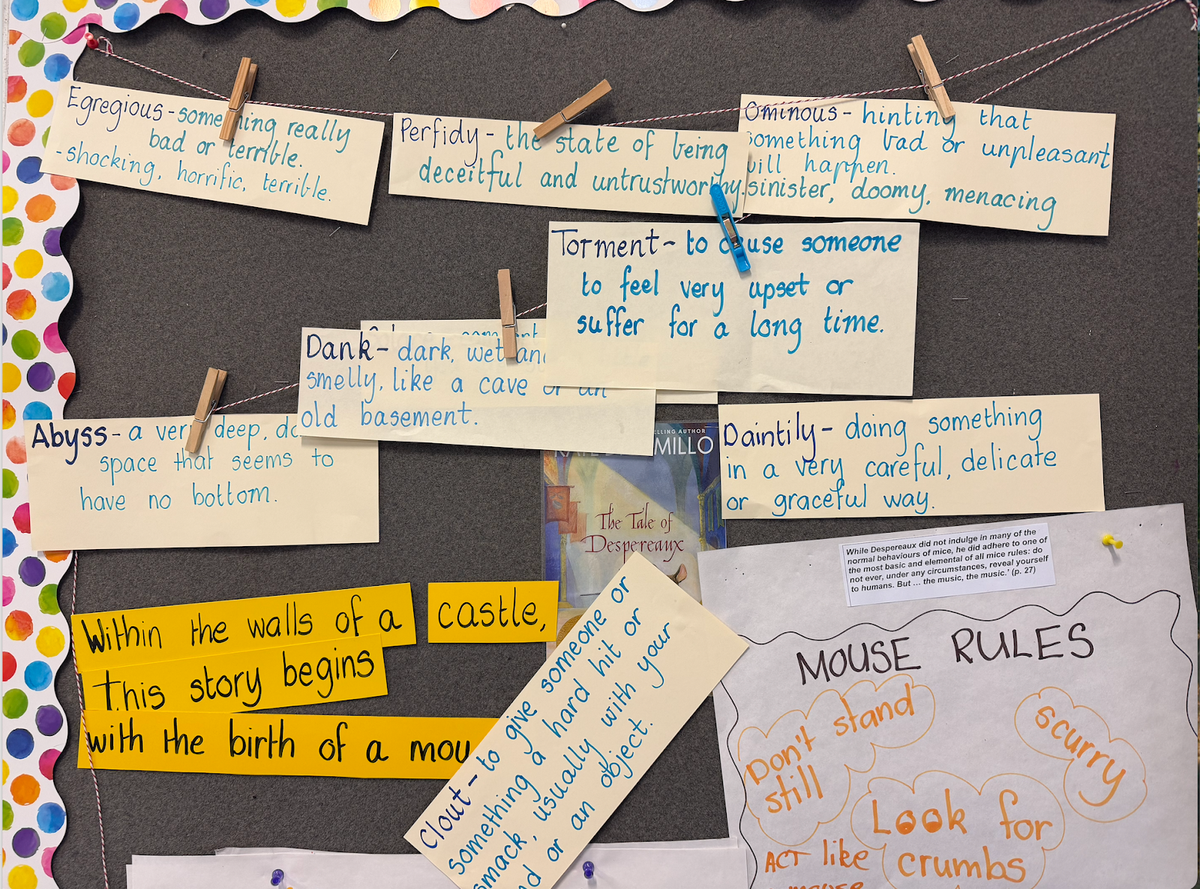 Egregious - something really
bad or terrible.
- shocking, horrific, terrible.
Perfidy - the state of being
deceitful and untrustworthy.
Ominous - hinting that
something bad or unpleasant
will happen.
sinister, doomy, menacing
Torment - to cause someone
to feel very upset or
suffer for a long time.
Dank - dark, wet and
smelly, like a cave or an
old basement.
Abyss - a very deep,
space that seems to
have no bottom.
Daintily - doing something
in a very careful, delicate
or graceful way.
AUTHOR
The Tale of
Despereaux
While Despereaux did not indulge in many of the
normal behaviours of mice, he did adhere to one of
the most basic and elemental of all mice rules: do
not ever, under any circumstances, reveal yourself
to humans. But ... the music, the music.' (p. 27)
Within the walls of a castle,
this story begins
with the birth of a
Clout - to give someone or
something a hard hit or
smack, usually with your
or an object.
MOUSE RULES
Don't stand
still
scurry
Look for
crumbs
ACT like